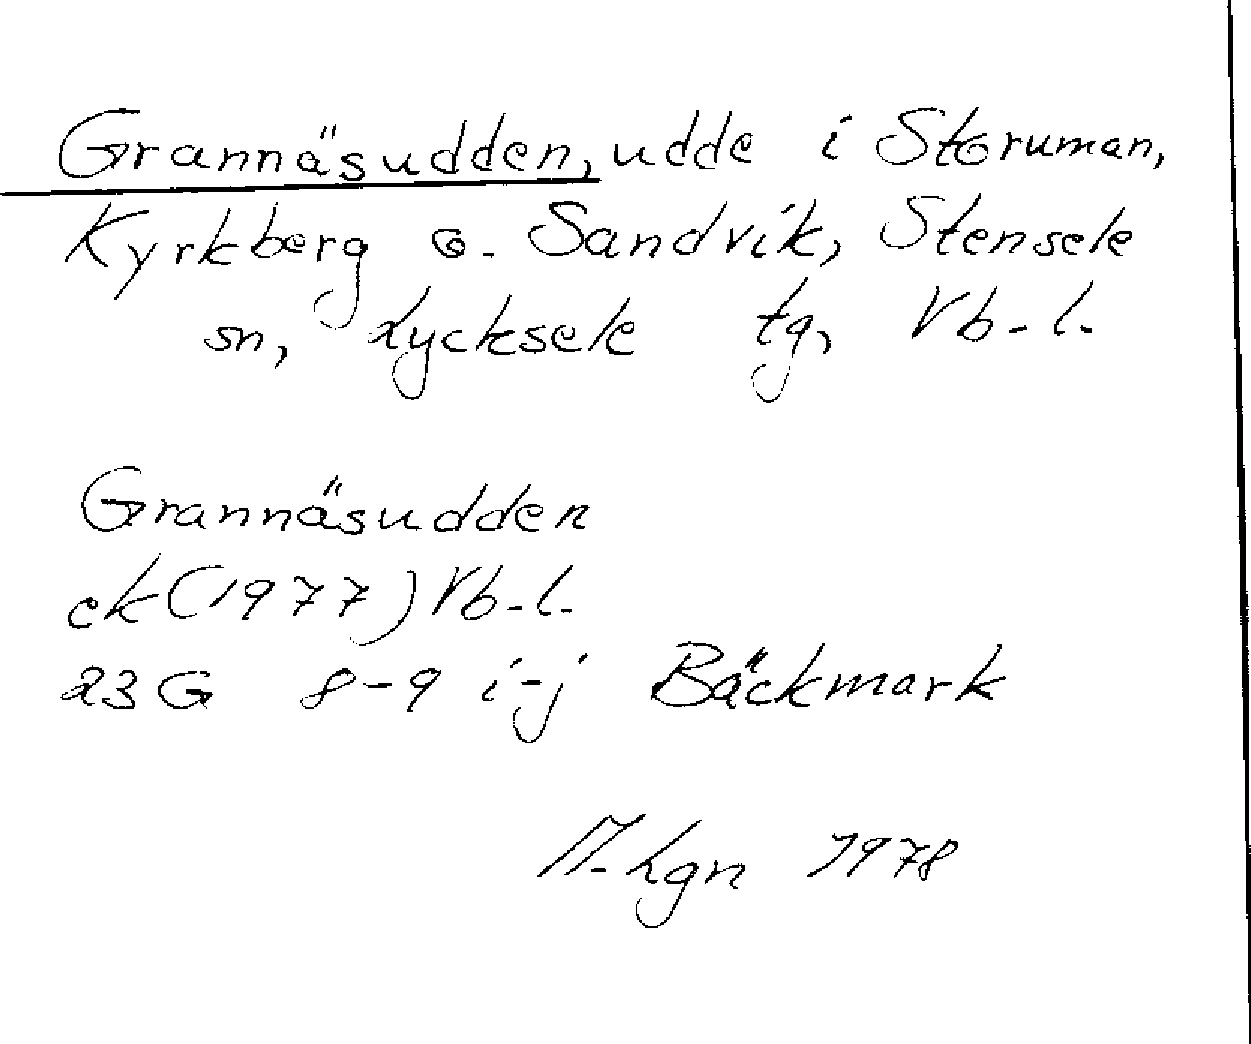 Grannäsudden, udde i Storuman,
Kyrkberg o. Sandvik, Stensele
sn, Lycksele tg, Vb-l.
Grannäsudden
ek (1977) Vb-l.
23G 8-9 i-j Bäckmark
1978